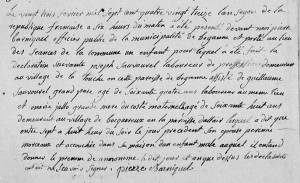 Le vingt trois fevrier mil Sept cent quatre vingt treize l'an Segond de la
republique francaise a Six heures du matin a été présenté devant moi pierre
Barniquel officier public de la municipalité de beganne et porté au lieu
des Seances de la commune un enfant pour lequel a été fait la
déclaration suivante joseph Sauvourel laboureur de profession demeurant
au village de la touche en cette paroisse de beganne assisté de guillaume
Sauvourel grand pere agé de Soixante quatre ans laboureur au meme lieu
et marie jalle grande mere du coté maternelle agé de Soixante huit ans
demeurante au village de en cette paroisse lequel a dit que
entre Sept a huit heures du Soir le jour precedent Son epouse perrine
moreaux est accouchée dans Sa maison d'un enfant male auquel il entend
donner le prenom de a dit jour et an que dessus les declarants
ont ne Scavoir Signer pierre Barniquel